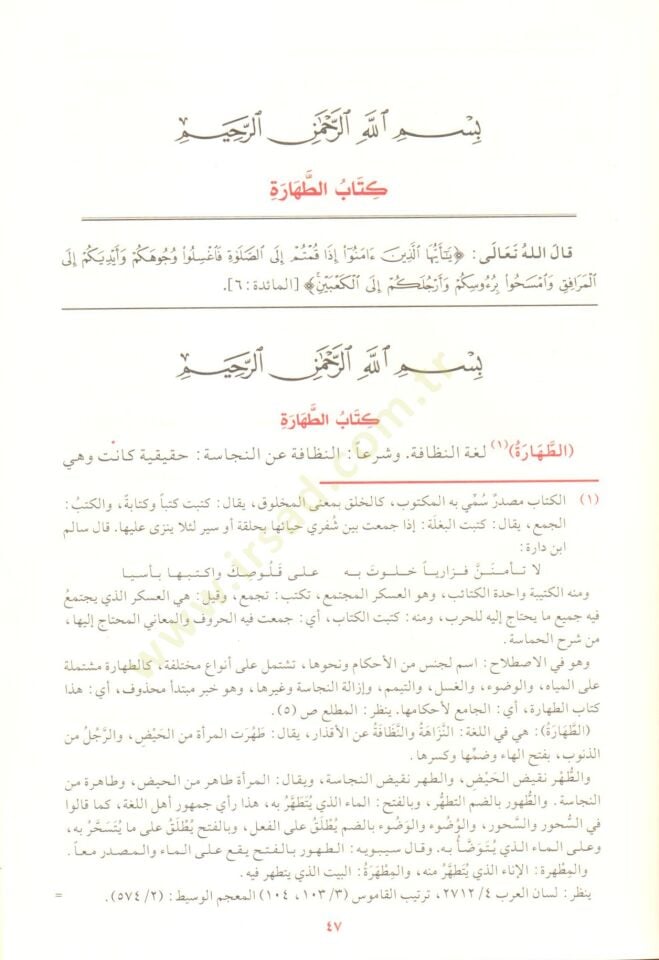 بِسْمِ ٱللَّهِ ٱلرَّحْمَٰنِ ٱلرَّحِيمِ
كِتَابُ الطَّهَارَةِ
قالَ اللهُ تَعَالَى: ﴿يَٰٓأَيُّهَا ٱلَّذِينَ ءَامَنُوٓا۟ إِذَا قُمْتُمْ إِلَى ٱلصَّلَوٰةِ فَٱغْسِلُوا۟ وُجُوهَكُمْ وَأَيْدِيَكُمْ إِلَى
ٱلْمَرَافِقِ وَٱمْسَحُوا۟ بِرُءُوسِكُمْ وَأَرْجُلَكُمْ إِلَى ٱلْكَعْبَيْنِ﴾ [المائدة: ٦].
بِسْمِ ٱللَّهِ ٱلرَّحْمَٰنِ ٱلرَّحِيمِ
كِتَابُ الطَّهَارَةِ
(الطَّهَارَةُ)(١) لغة النظافة. وشرعاً: النظافة عن النجاسة: حقيقية كانت وهي
(١) الكتاب مصدرٌ سُمِّي به المكتوب، كالخلق بمعنى المخلوق، يقال: كتبت كتباً وكتابةً، والكتبُ:
الجمع، يقال: كتبت البغلة: إذا جمعت بين شُفري حيائها بحلقة أو سير لئلا ينزى عليها. قال سالم
ابن دارة:
لا تأمنَنَّ فزارياً خلوتَ به على قَلُوصِكَ واكتبها بأسيا
ومنه الكتيبة واحدة الكتائب، وهو العسكر المجتمع، تكتب: تجمع، وقيل: هي العسكر الذي يجتمعُ
فيه جميع ما يحتاج إليه للحرب، ومنه: كتبت الكتاب، أي: جمعت فيه الحروف والمعاني المحتاج إليها،
من شرح الحماسة.
وهو في الاصطلاح: اسم لجنس من الأحكام ونحوها، تشتمل على أنواع مختلفة، كالطهارة مشتملة
على المياه، والوضوء، والغسل، والتيمم، وإزالة النجاسة وغيرها، وهو خبر مبتدأ محذوف، أي: هذا
كتاب الطهارة، أي: الجامع لأحكامها. ينظر: المطلع ص (٥).
(الطَّهَارَةُ): هي في اللغة: النَّزَاهَةُ والنَّظَافَةُ عن الأقذار، يقال: طَهُرَت المرأة من الحَيْضِ، والرَّجُلُ من
الذنوب، بفتح الهاء وضمِّها وكسرها.
والطُّهْرُ نقيض الحَيْضِ، والطهر نقيض النجاسة، ويقال: المرأة طاهر من الحيض، وطاهرة من
النجاسة. والطُّهور بالضم التطهُّر، وبالفتح: الماء الذي يُتَطَهَّرُ به، هذا رأي جمهور أهل اللغة، كما قالوا
في السُّحور والسَّحور، والوُضُوء والوَضُوء بالضم يُطْلَقُ على الفعل، وبالفتح يُطْلَقُ على ما يُتَسَحَّرُ به،
وعلى الماء الذي يُتَوَضَّأ به. وقال سيبويه: الطهور بالفتح يقع على الماء والمصدر معاً.
والمِطهرة: الإناء الذي يُتَطَهَّر منه، والمِطْهَرَةُ: البيت الذي يتطهر فيه.
ينظر: لسان العرب ٤/ ٢٧١٢، ترتيب القاموس (٣/ ١٠٣، ١٠٤) المعجم الوسيط: (٢/ ٥٧٤). =
٤٧
www.irsad.com.tr